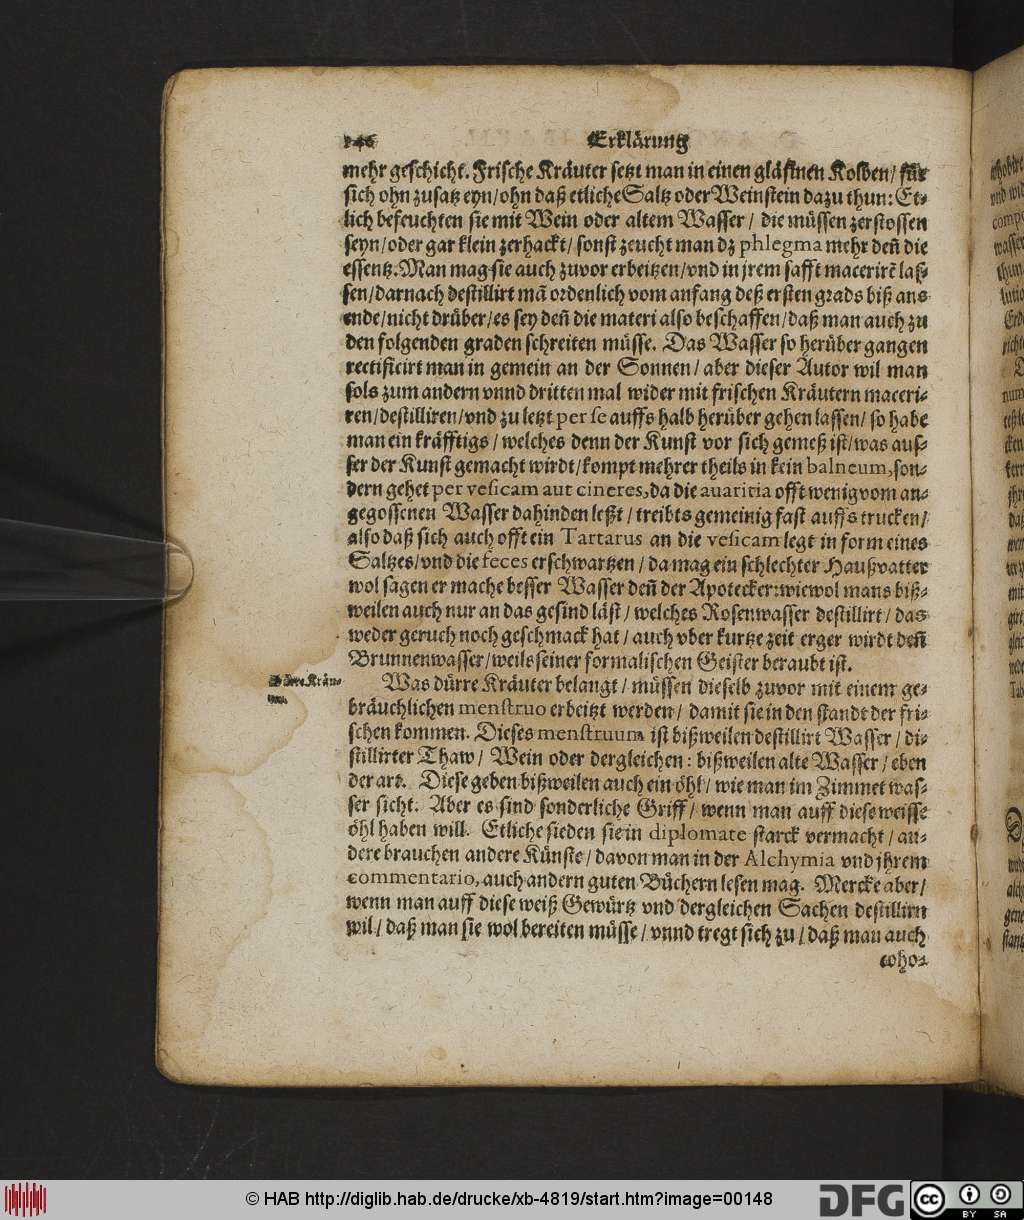 146 Erklärung
mehr geschicht. Frische Kräuter setzt man in einen gläſinen Kolben / für
sich ohn zusatz eyn / ohn daß etliche Saltz oder Weinstein dazu thun: Et⸗
lich befeuchten sie mit Wein oder altem Wasser / die müssen zerstossen
seyn / oder gar klein zerhackt / sonst zeucht man dz phlegma mehr deñ die
essentz. Man mag sie auch zuvor erbeitzen / vnd in jrem safft macerirẽ laſ⸗
sen / darnach destillirt mã ordenlich vom anfang deß ersten grads biß ans
ende / nicht drüber / es sey deñ die materi also beschaffen / daß man auch zu
den folgenden graden schreiten müsse. Das Wasser so herüber gangen
rectificirt man in gemein an der Sonnen / aber dieser Autor wil man
sols zum andern vnnd dritten mal wider mit frischen Kräutern maceri⸗
ren / destilliren / vnd zu letzt per se auffs halb herüber gehen lassen / so habe
man ein kräfftigs / welches denn der Kunst vor sich gemeß ist / was auſ⸗
ser der Kunst gemacht wirdt / kompt mehrer theils in kein balneum, son⸗
dern gehet per vesicam aut cineres, da die avaritia offt wenig vom an⸗
gegossenen Wasser dahinden leßt / treibts gemeinig fast auffs trucken /
also daß sich auch offt ein Tartarus an die vesicam legt in form eines
Saltzes / vnd die feces erschwartzen / da mag ein schlechter Haußvatter
wol sagen er mache besser Wasser deñ der Apotecker: wiewol mans biß⸗
weilen auch nur an das gesind läst / welches Rosenwasser destillirt / das
weder geruch noch geschmack hat / auch vber kurtze zeit erger wirdt deñ
Brunnenwasser / weils seiner formalischen Geister beraubt ist.
Dürre Kräu⸗
ter.
Was dürre Kräuter belangt / müssen dieselb zuvor mit einem ge⸗
bräuchlichen menstruo erbeitzt werden / damit sie in den standt der fri⸗
schen kommen. Dieses menstruum ist bißweilen destillirt Wasser / di⸗
stillirter Thaw / Wein oder dergleichen: bißweilen alte Wasser / eben
der art. Diese geben bißweilen auch ein öhl / wie man im Zimmet was⸗
ser sicht. Aber es sind sonderliche Griff / wenn man auff diese weisse
öhl haben will. Etliche sieden sie in diplomate starck vermacht / an⸗
dere brauchen andere Künste / davon man in der Alchymia vnd jhrem
commentario, auch andern guten Büchern lesen mag. Mercke aber /
wenn man auff diese weiß Gewürtz vnd dergleichen Sachen destillirn
wil / daß man sie wol bereiten müsse / vnnd tregt sich zu / daß man auch
© HAB http://diglib.hab.de/drucke/xb-4819/start.htm?image=00148
DFG
cc
BY SA